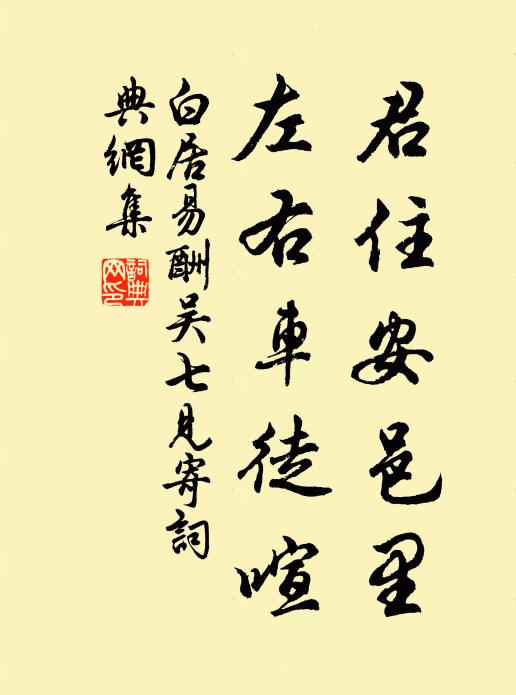 君住安邑里
左右車徒喧
白居易酬吴七見寄詞
典網集
詞典
网印